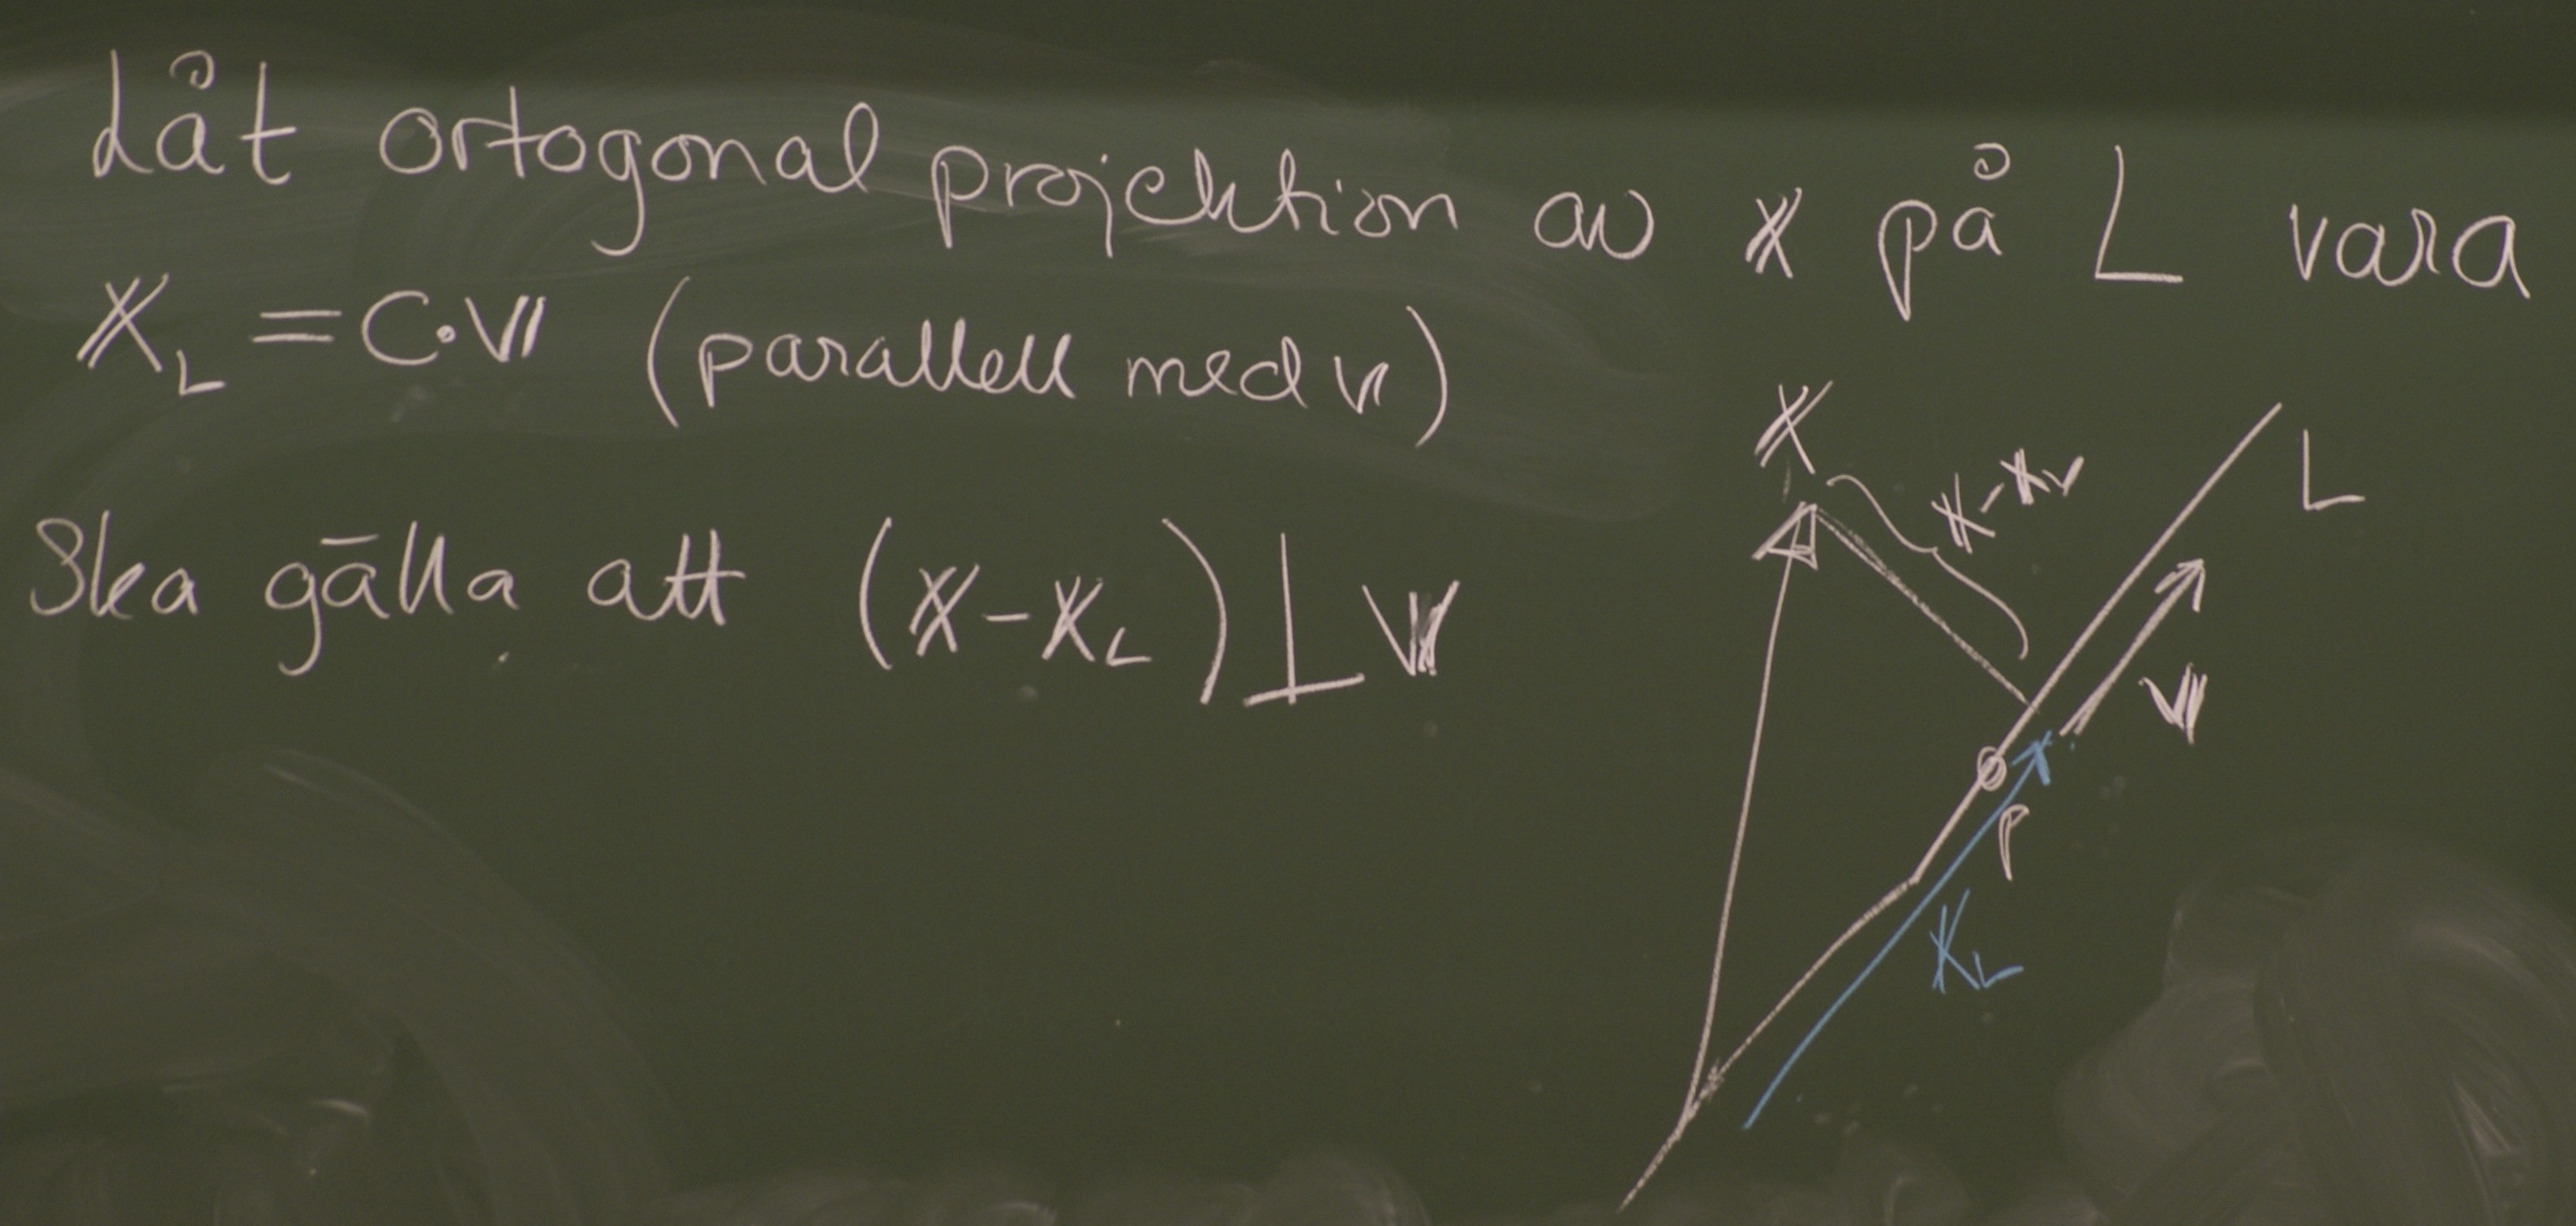 Låt ortogonal projektion av x på L vara
x_L = c·v (parallell med v)
Ska gälla att (x-x_L)⊥v
x
x-x_L
L
v
P
x_L